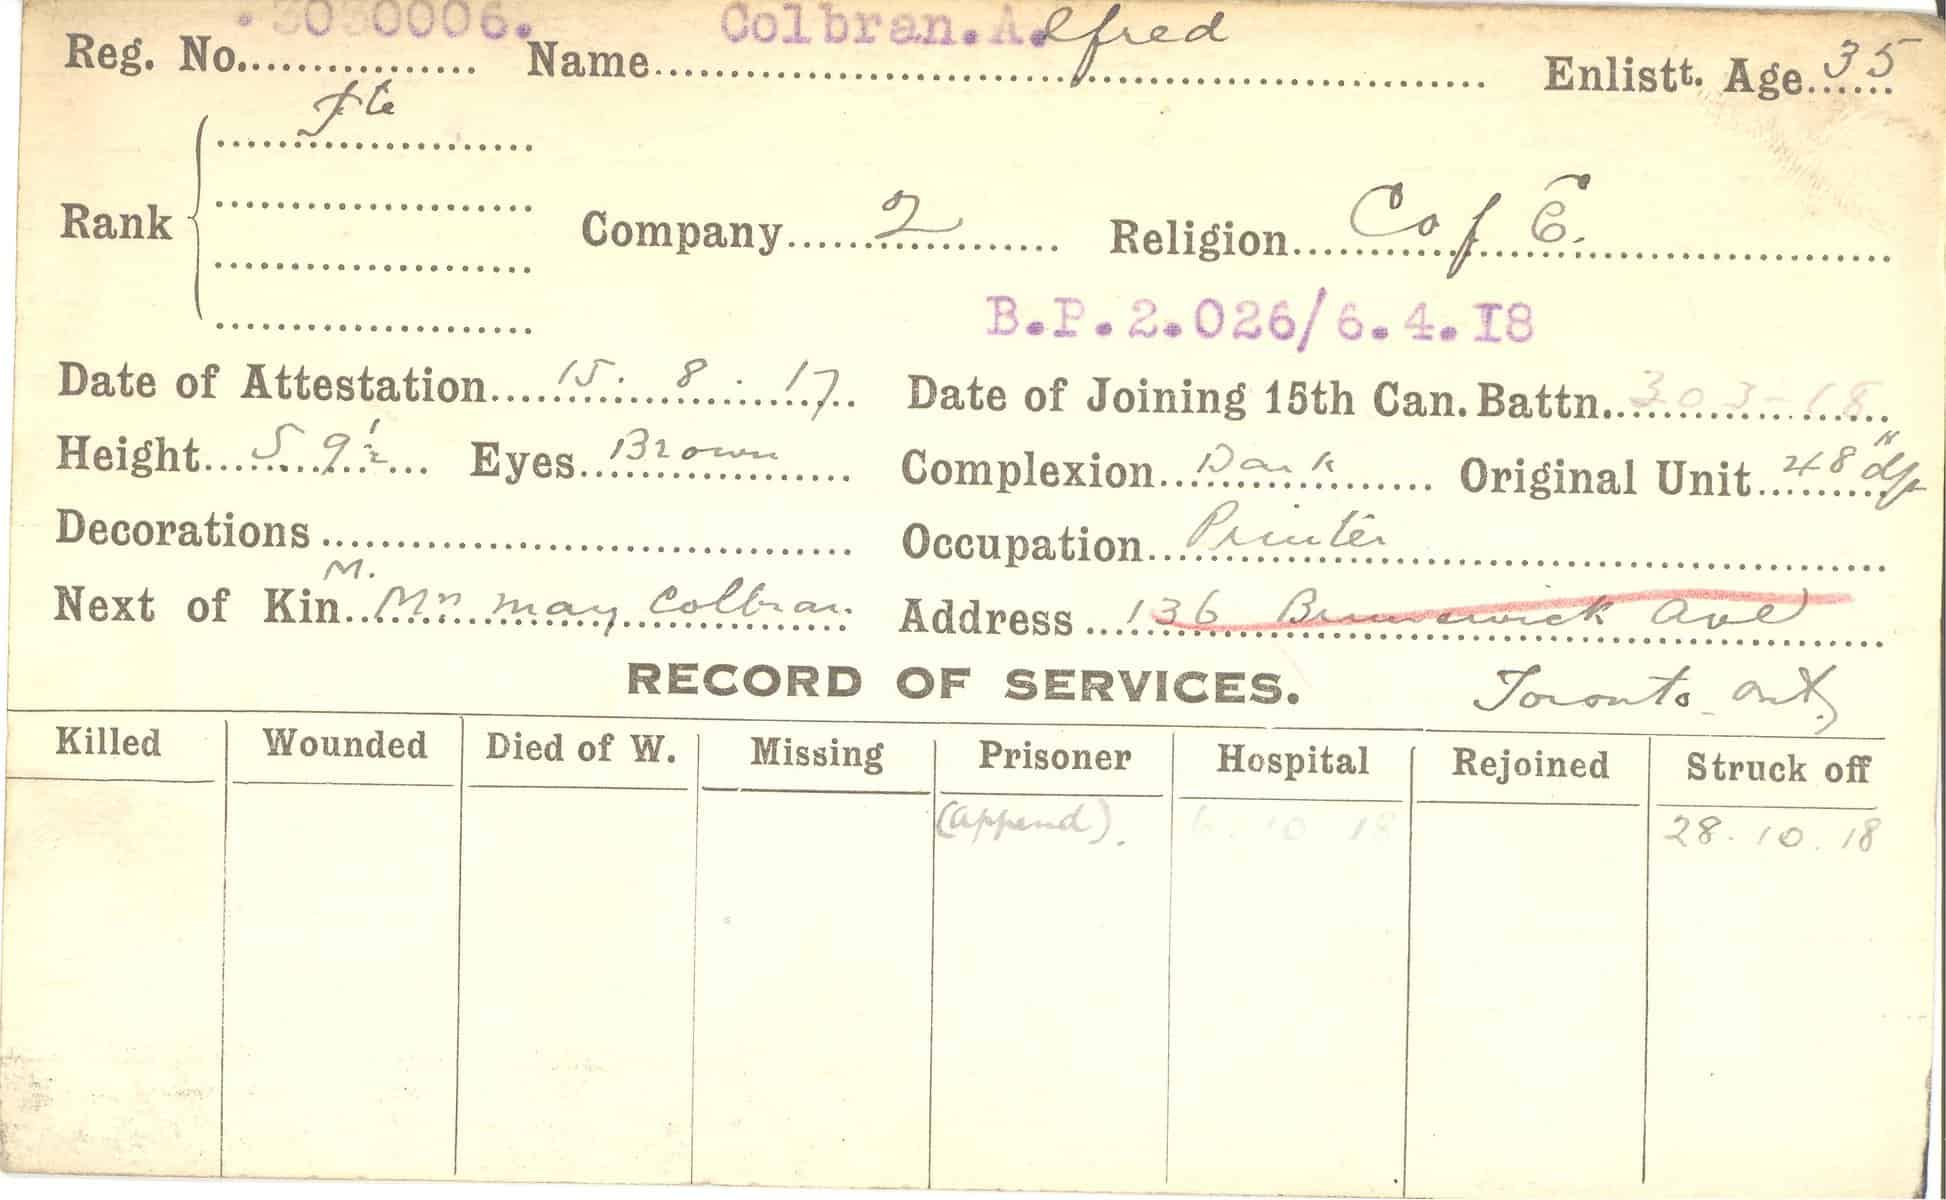 Reg. No. 3030006. Name Colbran. Alfred Enlistt. Age 35
Pte
Rank Company 2 Religion C of E.
B.P.2.026/6.4.18
Date of Attestation 15. 8. 17. Date of Joining 15th Can. Battn. 30 3-18
Height 5 9½ Eyes Brown Complexion Dark Original Unit 48th
Decorations Occupation Printer
M.
Next of Kin Mrs. May Colbran. Address 136 Brunswick Ave
RECORD OF SERVICES. Toronto Ont.
Killed Wounded Died of W. Missing Prisoner Hospital Rejoined Struck off
(append). 6. 10 18 28. 10. 18